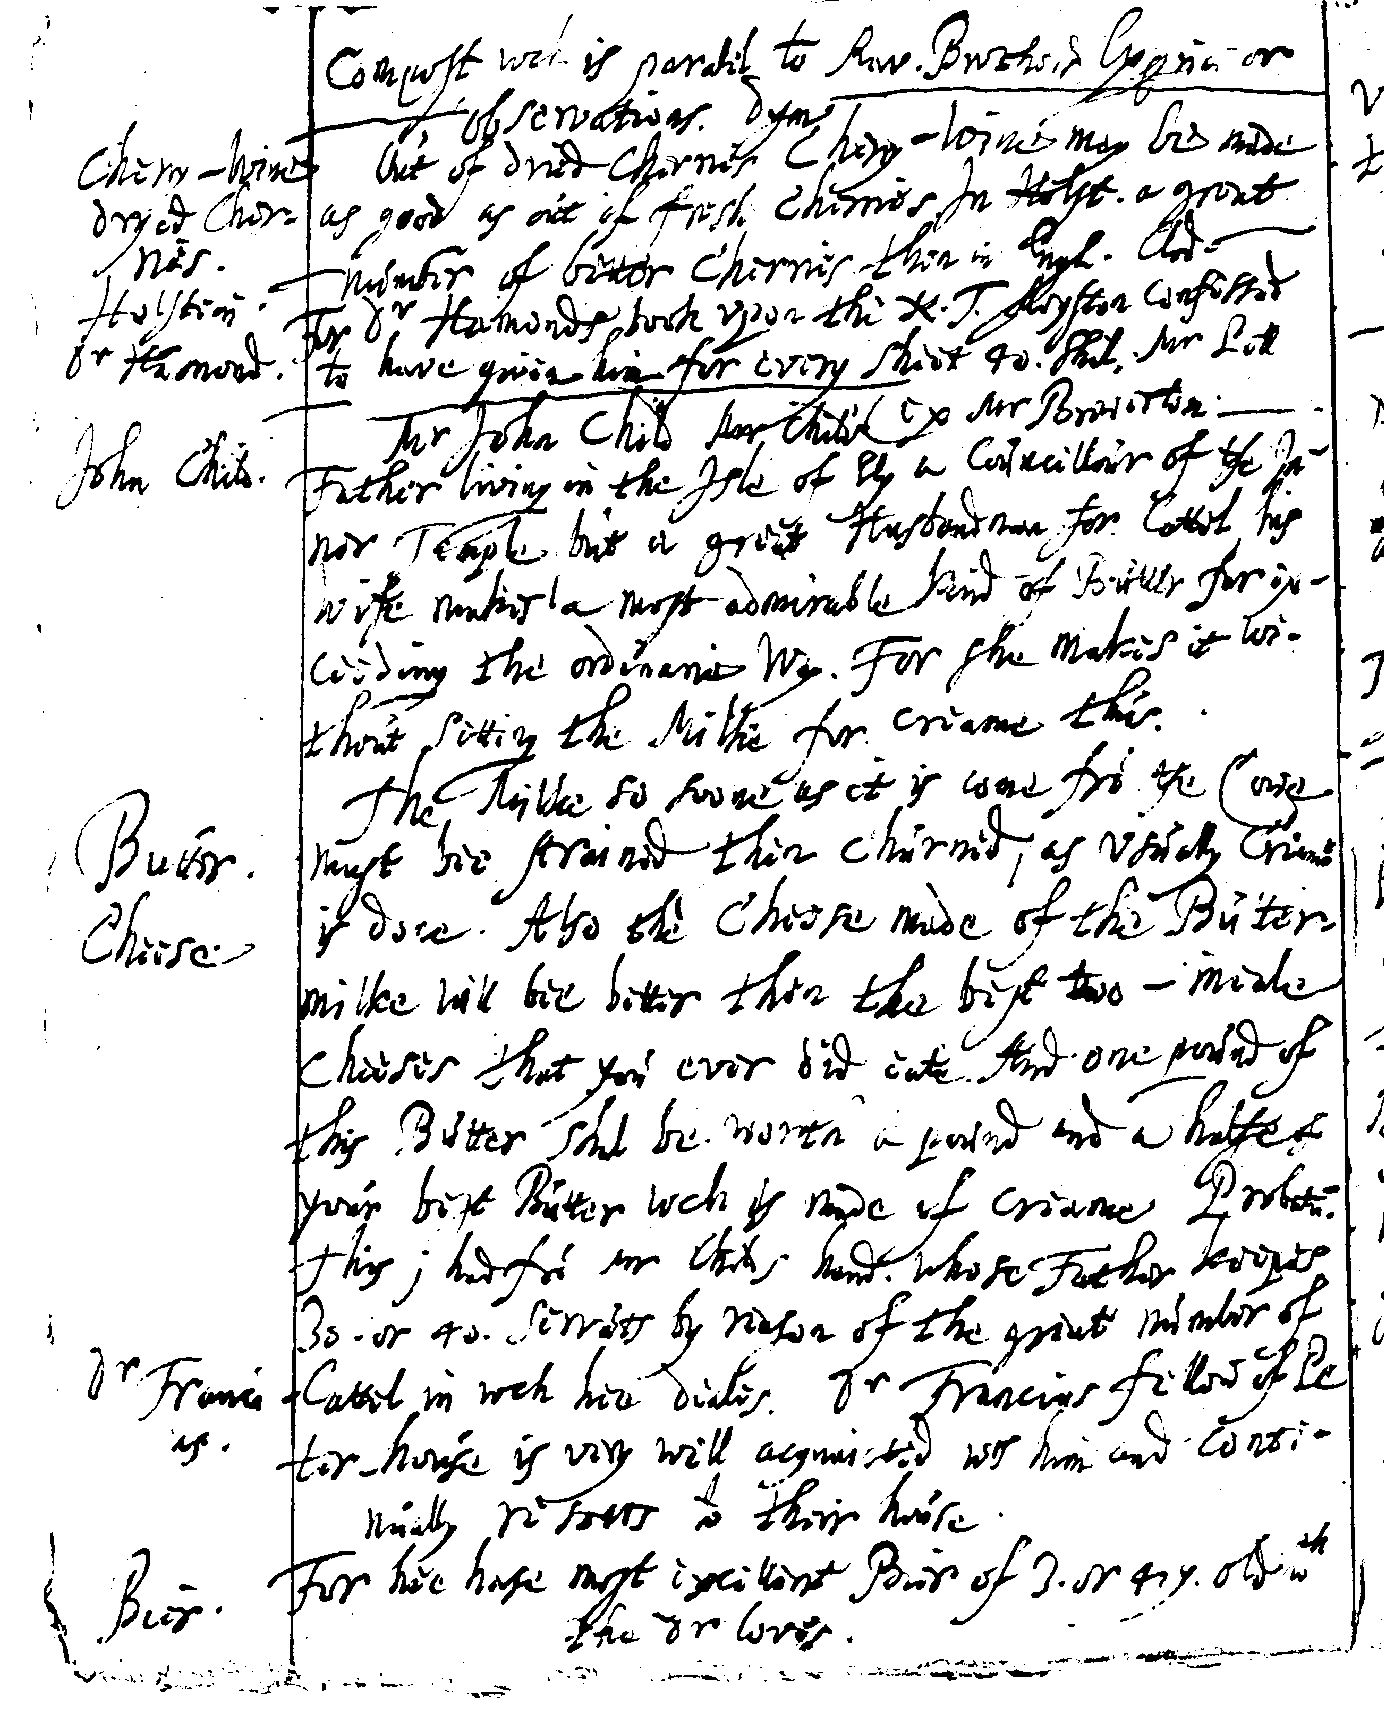 Compost wch is paralel to Rav. Brothers Exper. or
observations. Dym
Chery-Wine
dryed Cher-
ries.
Out of dried Cherries Chery-Wine may be made
as good as out of fresh Cherries. In Holst. a great
number of better Cherries then in Engl. Clod.
Holstein.
Dr Hamond.
For Dr Hamonds book upon the N. T. Royston confessed
to have given him for every sheet 40. shil. Mr Lett
John Child.
Mr John Child Mr Childs Ex Mr Brereton.
Father living in the Isle of Ely a Councillour of the In-
ner Temple but a great Husbandman for Cattel his
wife makes a most admirable kind of Butter far ex-
ceeding the ordinarie Way. For she makes it wi-
thout setting the Milke for Creame thus.
Butter.
Cheese
The Milke so soone as it is come frõ the Cowe
must bee strained then churned, as usually Creame
is done. Also the Cheese made of the Butter-
milke will bee better then the best two-meale
Cheeses that you ever did eate. And one pound of
this Butter shal be worth a pound and a halfe of
your best Butter wch is made of Creame Probatũ.
This j had frõ Mr Childs hand. whose Father keepes
30. or 40. Servãts by reason of the great number of
Dr Franci
as.
Cattel in wch hee deales. Dr Francius fellow of Pe
ter-house is very well acquainted wth him and conti-
nually resorts to their house.
Beer.
For hee hase most excellent Beer of 3. or 4. y. old wch
the Dr loves.